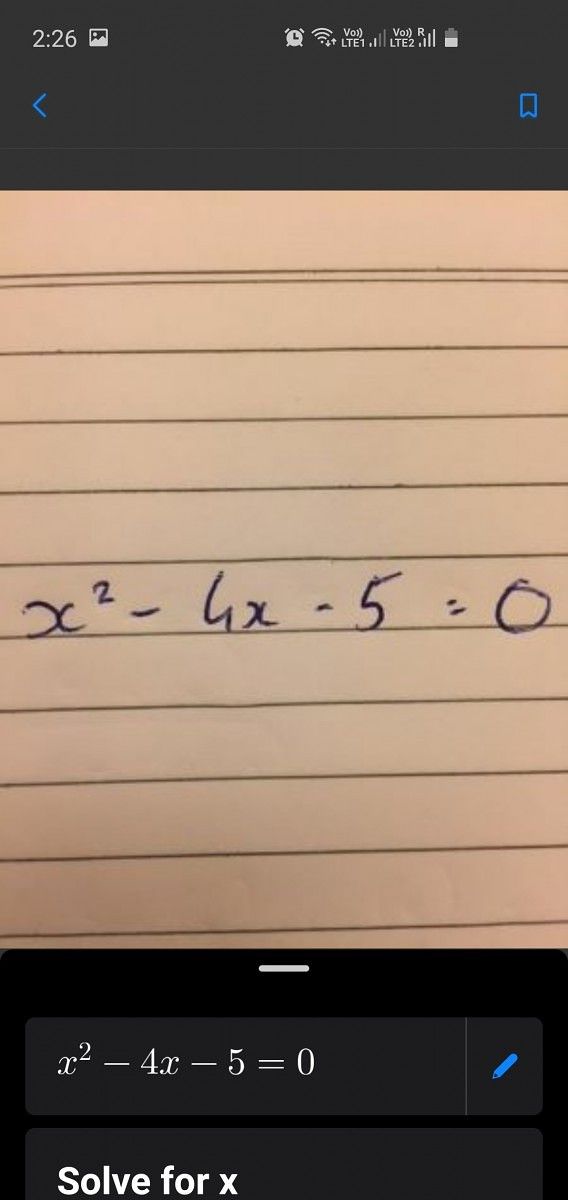 2:26
Vo)) LTE1 Vo)) LTE2 R
x² - 4x - 5 = 0
x² − 4x − 5 = 0
Solve for x